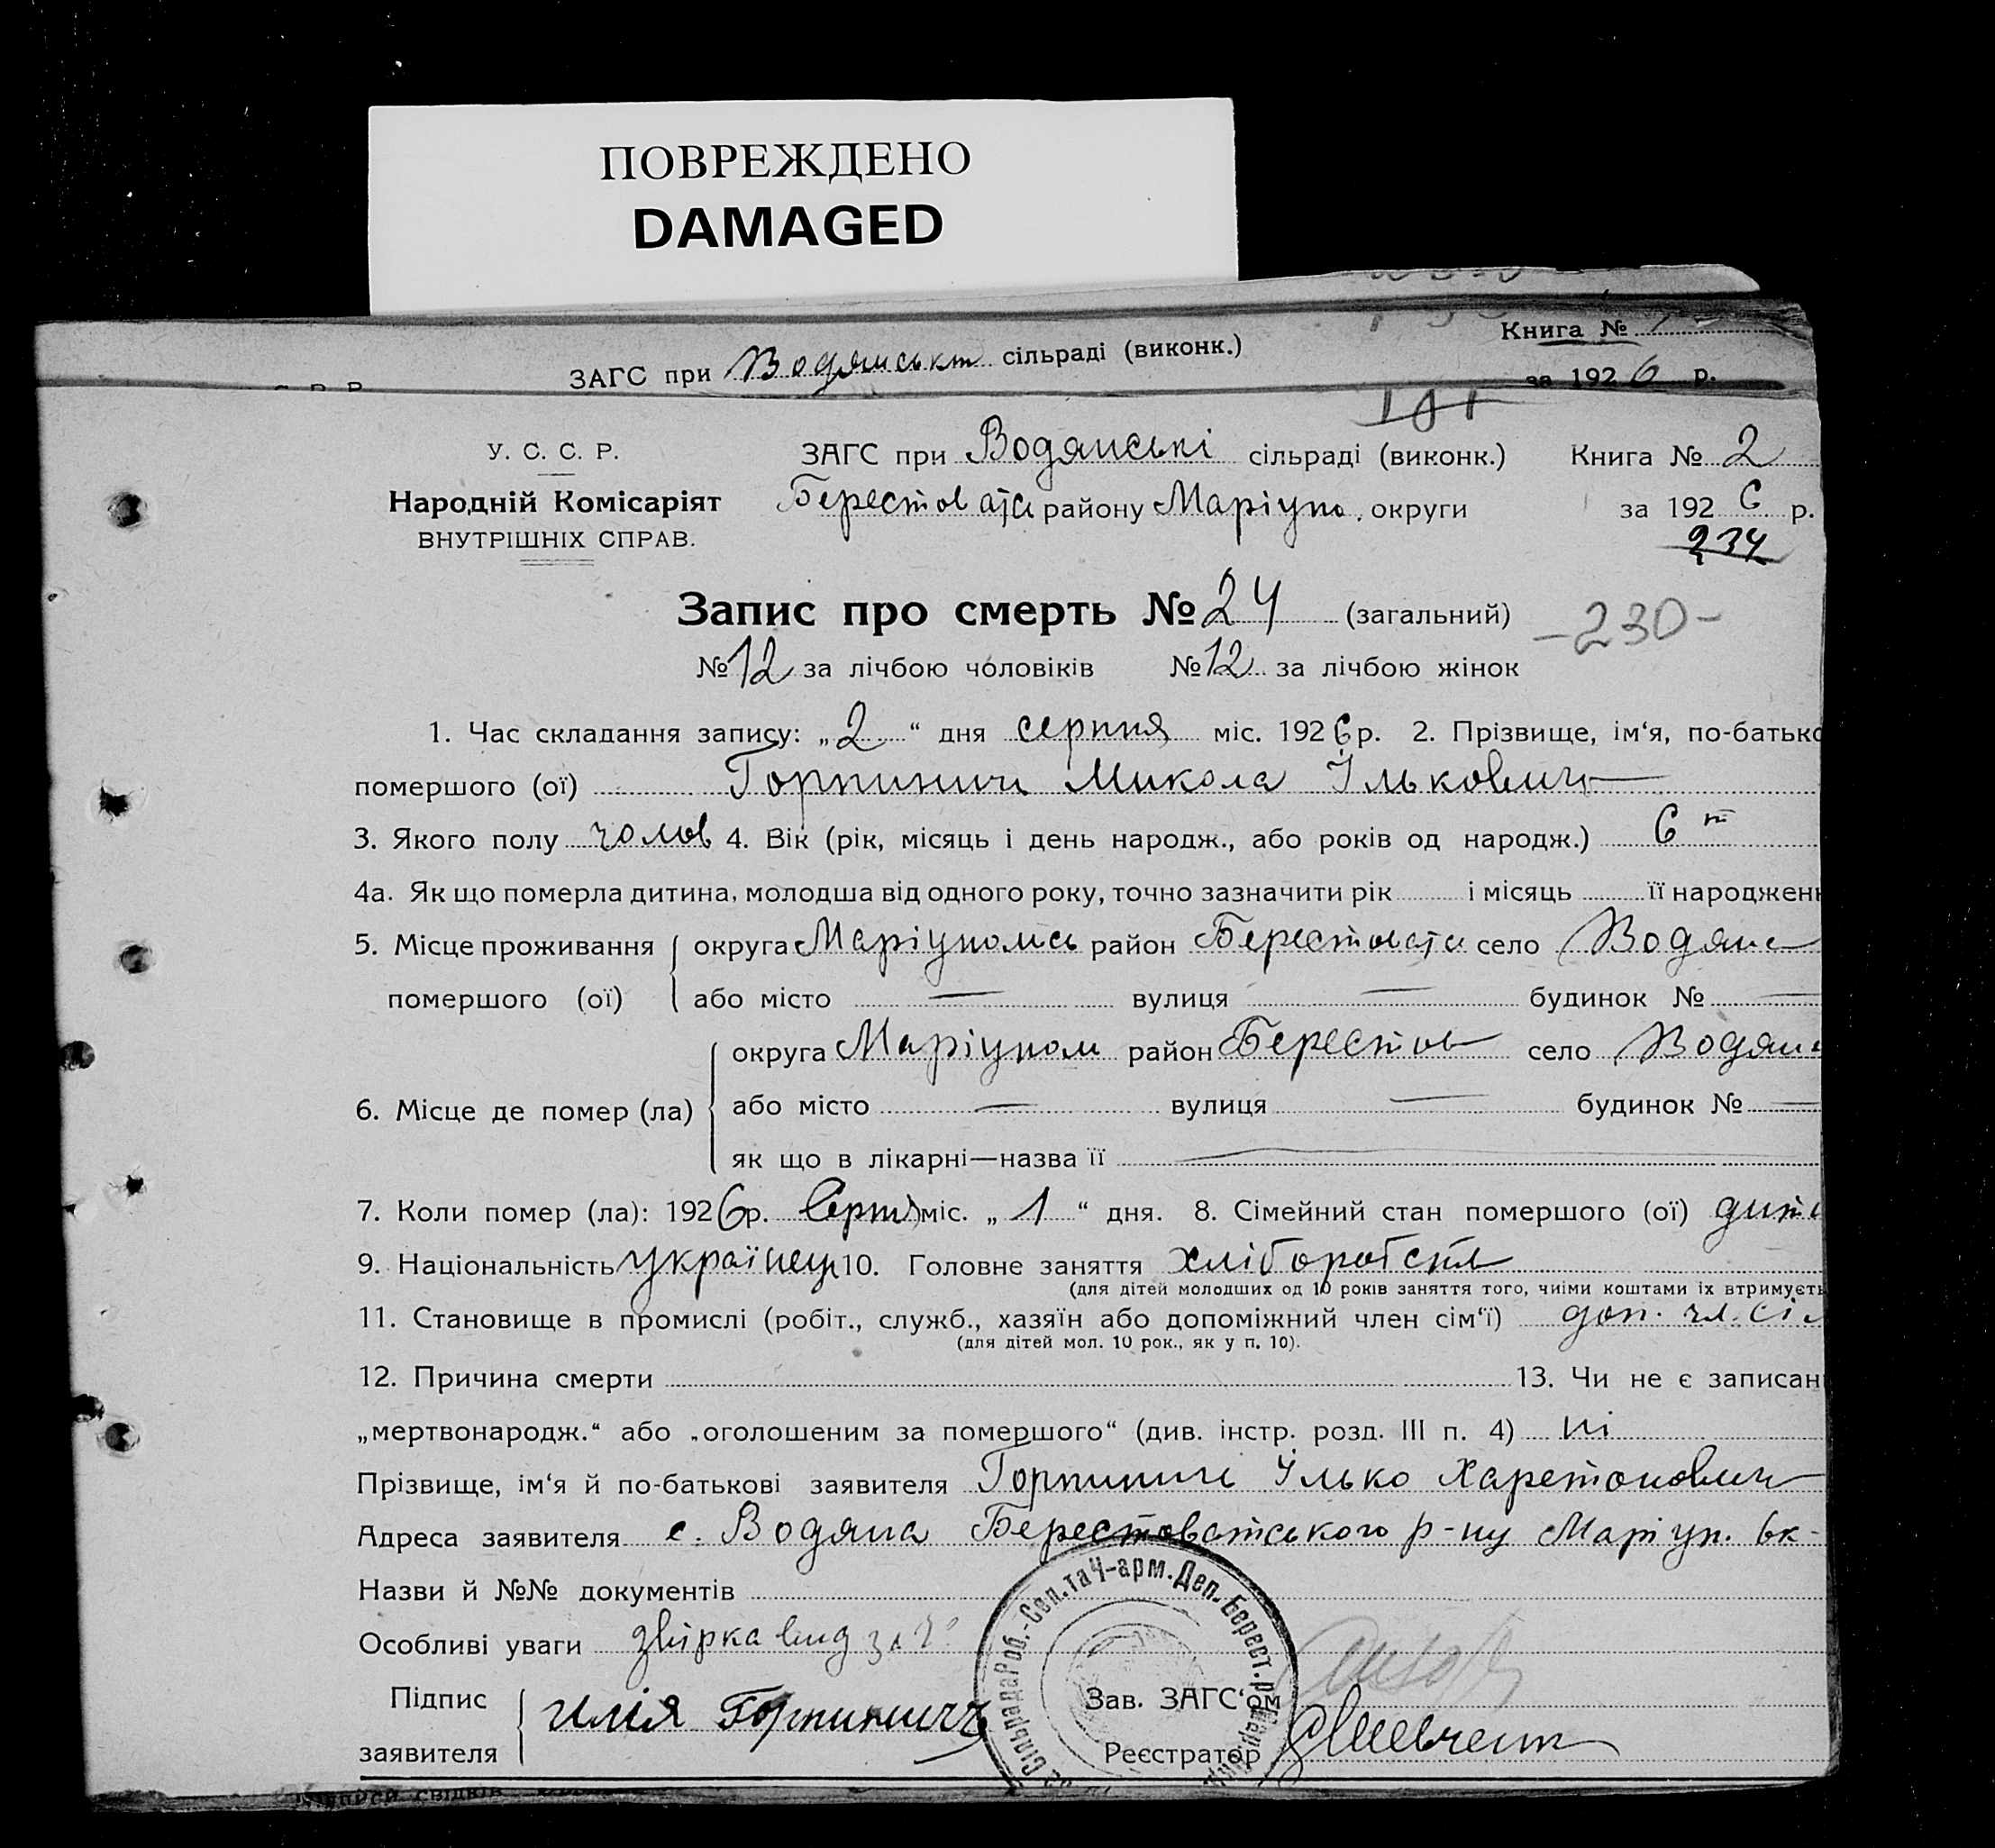 ПОВРЕЖДЕНО
DAMAGED
Книга №
ЗАГС при Водянськт сільраді (виконк.)
за 1926 р.
У. С. С. Р.
ЗАГС при Водянські сільраді (виконк.) Книга № 2
Народній Комісаріят
Берестоватс району Маріупо. округи за 1926 р.
ВНУТРІШНІХ СПРАВ.
234
Запис про смерть № 24 (загальний)
-230-
№ 12 за лічбою чоловіків № 12 за лічбою жінок
1. Час складання запису: „2“ дня серпня міс. 1926 р. 2. Прізвище, ім‘я, по-батько
помершого (ої) Горпинич Микола Ількович
3. Якого полу чолов 4. Вік (рік, місяць і день народж., або років од народж.) 6
4а. Як що померла дитина, молодша від одного року, точно зазначити рік і місяць її народжен
5. Місце проживання округа Маріуполь район Берестоватс село Водяне
помершого (ої) або місто — вулиця — будинок № —
округа Маріупол район Берестов село Водян
6. Місце де помер (ла) або місто — вулиця — будинок № —
як що в лікарні—назва її —
7. Коли помер (ла): 1926 р. Серпня міс. „1“ дня. 8. Сімейний стан помершого (ої) дит
9. Національність українець 10. Головне заняття хліборобств
(для дітей молодших од 10 років заняття того, чиїми коштами їх втримуєть
11. Становище в промислі (робіт., служб., хазяїн або допоміжний член сім‘ї) доп. чл. сі
(для дітей мол. 10 рок., як у п. 10).
12. Причина смерти 13. Чи не є записан
„мертвонародж.“ або „оголошеним за помершого“ (див. інстр. розд. III п. 4) ні
Прізвище, ім‘я й по-батькові заявителя Горпинич Ілько Харетонович
Адреса заявителя с. Водяна Берестоватського р-ну Маріуп. ок-
Назви й №№ документів
Особливі уваги звірка
Роб.-Сел. та Ч-арм. Деп. Берест. р. Сільрада
Підпис заявителя Илія Горпиничъ
Зав. ЗАГС‘ом
Реєстратор Шевченко